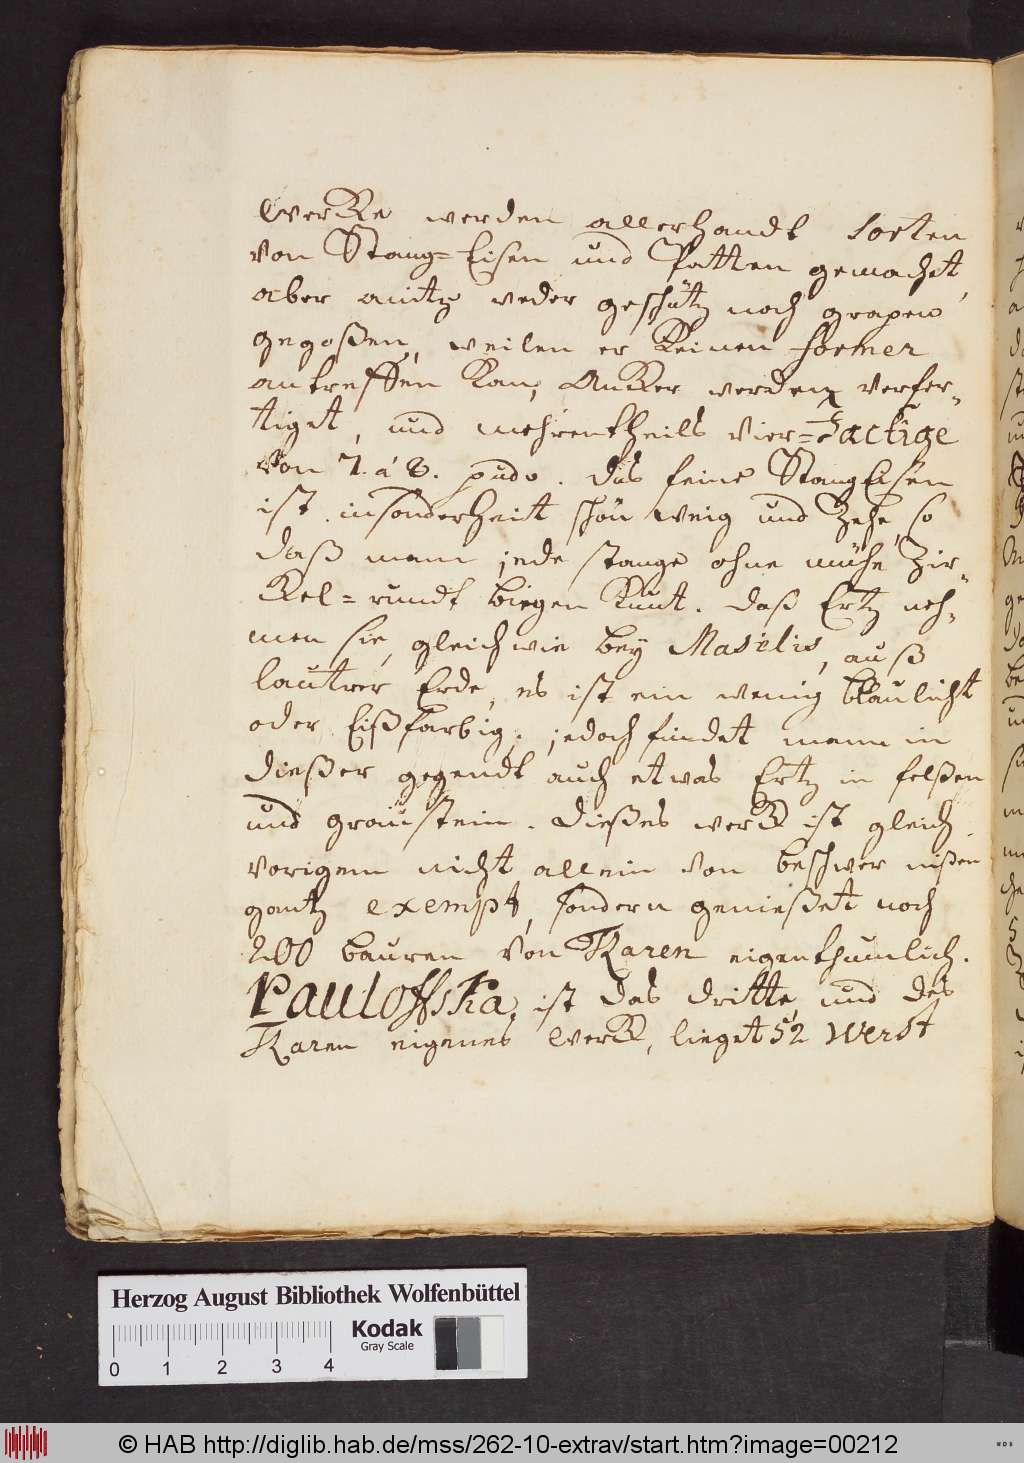 Wercke werden allerhandt Sorten
von Stang=Eisen und Platten gemacht,
aber anitz weder geschütz noch grapen
gegoßen, weilen er keinen former
antreffen kan, Ancker werden verfer-
tiget, und mehrentheils vier=Zactige
von 7. à 8. pudo. Das feine StangEisen
ist insonderheit schön weig und Zehe, so
daß mann jede stange ohne mühe Zir-
kel=rundt biegen kunt. Daß Ertz neh-
men sie, gleich wie bey Masilis, auß
lautrer Erde, es ist ein wenig blaulicht
oder Eißfarbig, jedoch findet mann in
dießer gegendt auch etwas Ertz in felßen
und graustein. Dießes werck ist gleich
vorigem nicht allein von beschwernißen
gantz exempt, sondern genießet noch
200 bauren von Zaren eigenthumlich.
Pauloffska, ist das dritte, und des
Zaren eigenes Werck, lieget 52 Werst
Herzog August Bibliothek Wolfenbüttel
Kodak
Gray Scale
0 1 2 3 4
© HAB http://diglib.hab.de/mss/262-10-extrav/start.htm?image=00212